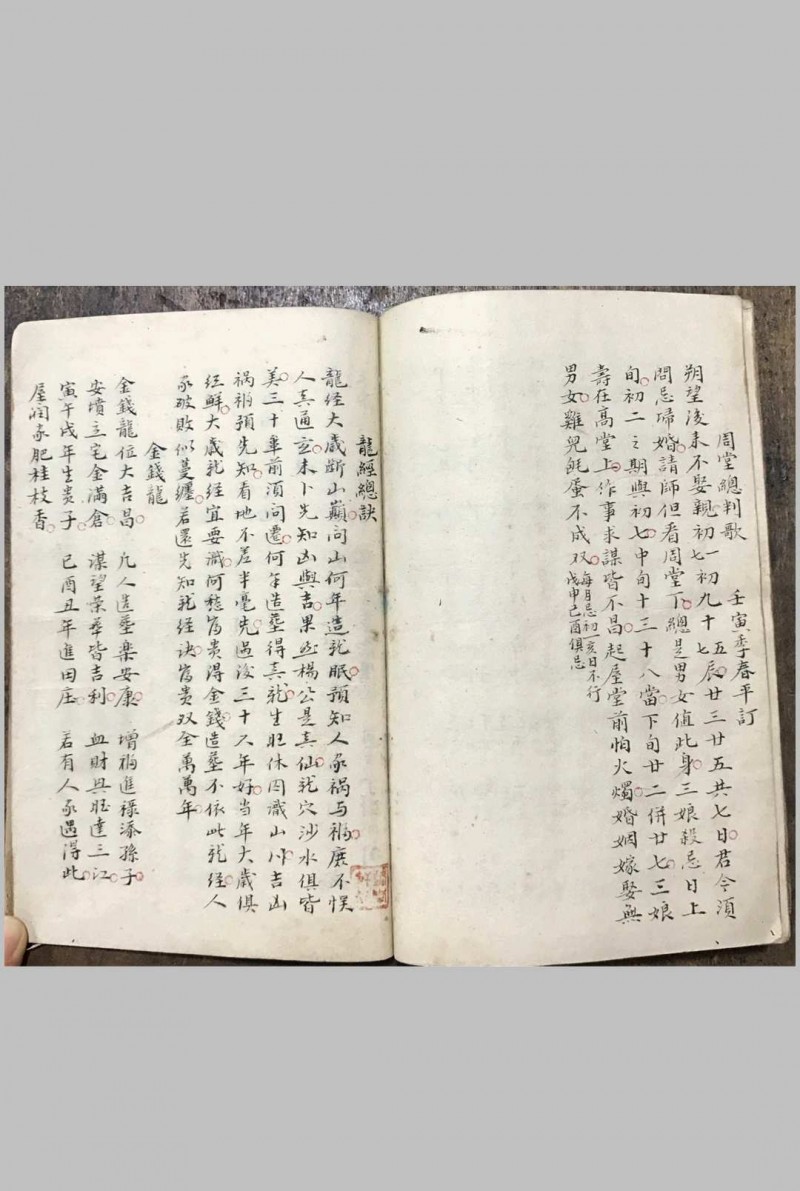 周堂總判歌　壬寅季春平訂
朔望後未不娶親初一初七初九十五辰廿三廿五共七日君今須
問忌㷌婚請師但看周堂下總是男女值此身三娘殺忌日上
旬初二之期與初七中旬十三十八當下旬廿二併廿七三娘
壽在高堂上作事求謀皆不昌起屋堂前怕火燭婚姻嫁娶無
男女雞兒㲠蛋不成双每月忌初一亥日不行
戊申己酉俱忌
龍經總訣
龍經大歲斷山巔問山何年造龍眠預知人家禍与福庶不悮
人真通玄未卜先知凶與吉果然楊公是真仙龍穴沙水俱皆
美三十年前須問遷何年造塟得真龍生旺休囚識山川吉凶
禍福預先知看地不差半毫先過後三十六年好當年大歲俱
經鮮大歲龍經宜要識何愁富贵得金錢造塟不依此龍經人
家破敗似蔓纏若還先知龍經訣富贵双全萬萬年
金錢龍
金錢龍位大吉昌　凢人造塟樂安康　增福進祿添孫子
安墳立宅金滿倉　謀望荣華皆吉利　血財興旺達三江
寅午戌年生贵子　巳酉丑年進田庄　若有人家遇得此
屋润家肥桂枝香